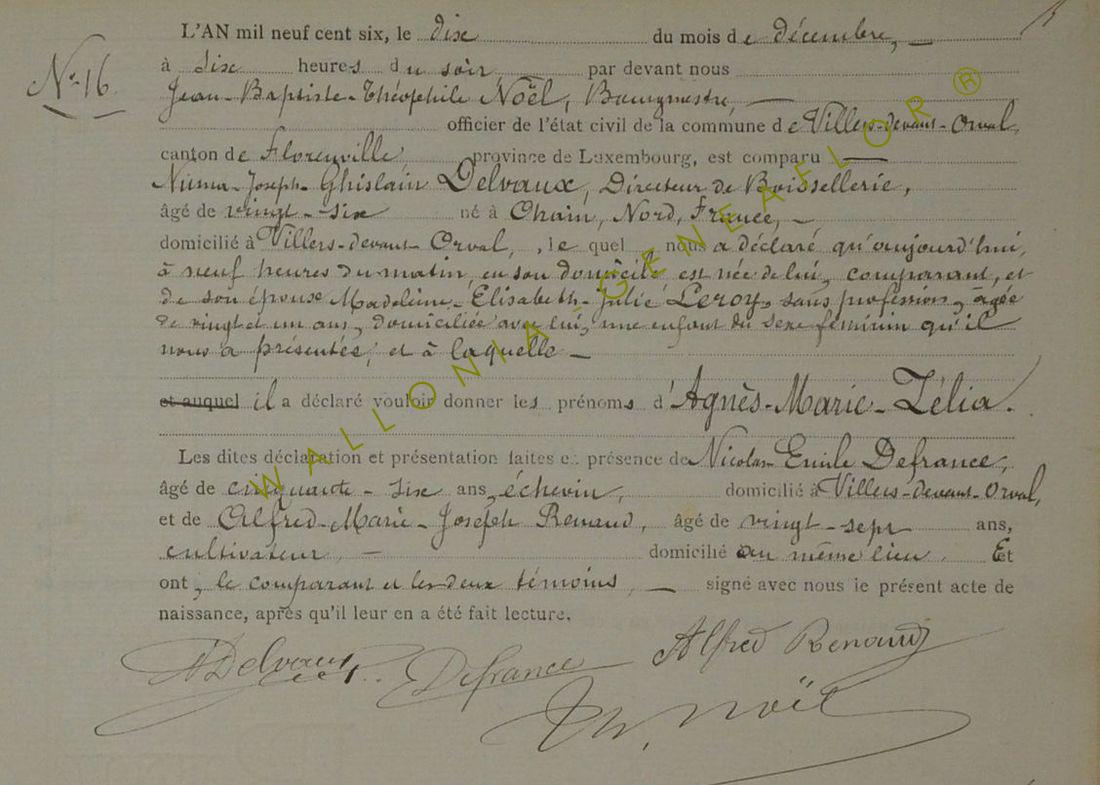 L'AN mil neuf cent six, le dix du mois de décembre,
N° 16
à six heures du soir, par devant nous
Jean-Baptiste-Théophile Noël, Bourgmestre,
officier de l'état civil de la commune de Villers-devant-Orval,
canton de Florenville province de Luxembourg, est comparu
Numa-Joseph-Ghislain Delvaux, Directeur de Boissellerie,
âgé de vingt-six né à Ohain, Nord, France,
domicilié à Villers-devant-Orval, le quel nous a déclaré qu'aujourd'hui,
à neuf heures du matin, en son domicile est née de lui, comparant, et
de son épouse Madeleine-Elisabeth-Julie Leroy, sans profession, âgée
de vingt et un ans, domiciliée avec lui, une enfant du sexe féminin qu'il
nous a présentée, et à laquelle
et auquel il a déclaré vouloir donner les prénoms d'Agnès-Marie-Zélia.
Les dites déclaration et présentation faites en présence de Nicolas Emile Defrance,
âgé de cinquante-six ans, échevin, domicilié à Villers-devant-Orval,
et de Alfred-Marie-Joseph Renaud, âgé de vingt-sept ans,
cultivateur, domicilié au même lieu. Et
ont, le comparant et les deux témoins, signé avec nous le présent acte de
naissance, après qu'il leur en a été fait lecture.
Delvaux Defrance Alfred Renaud
Th. Noël
WALLONIA-GENEAFLOR®